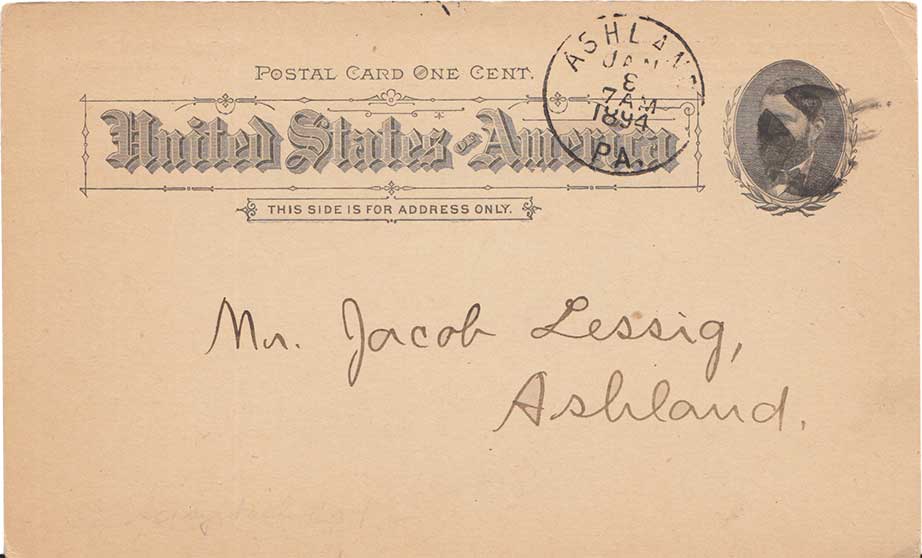 POSTAL CARD ONE CENT.
United States of America
THIS SIDE IS FOR ADDRESS ONLY.
ASHLAND
JAN
8
7 AM
1894
PA.
Mr. Jacob Lessig,
Ashland.